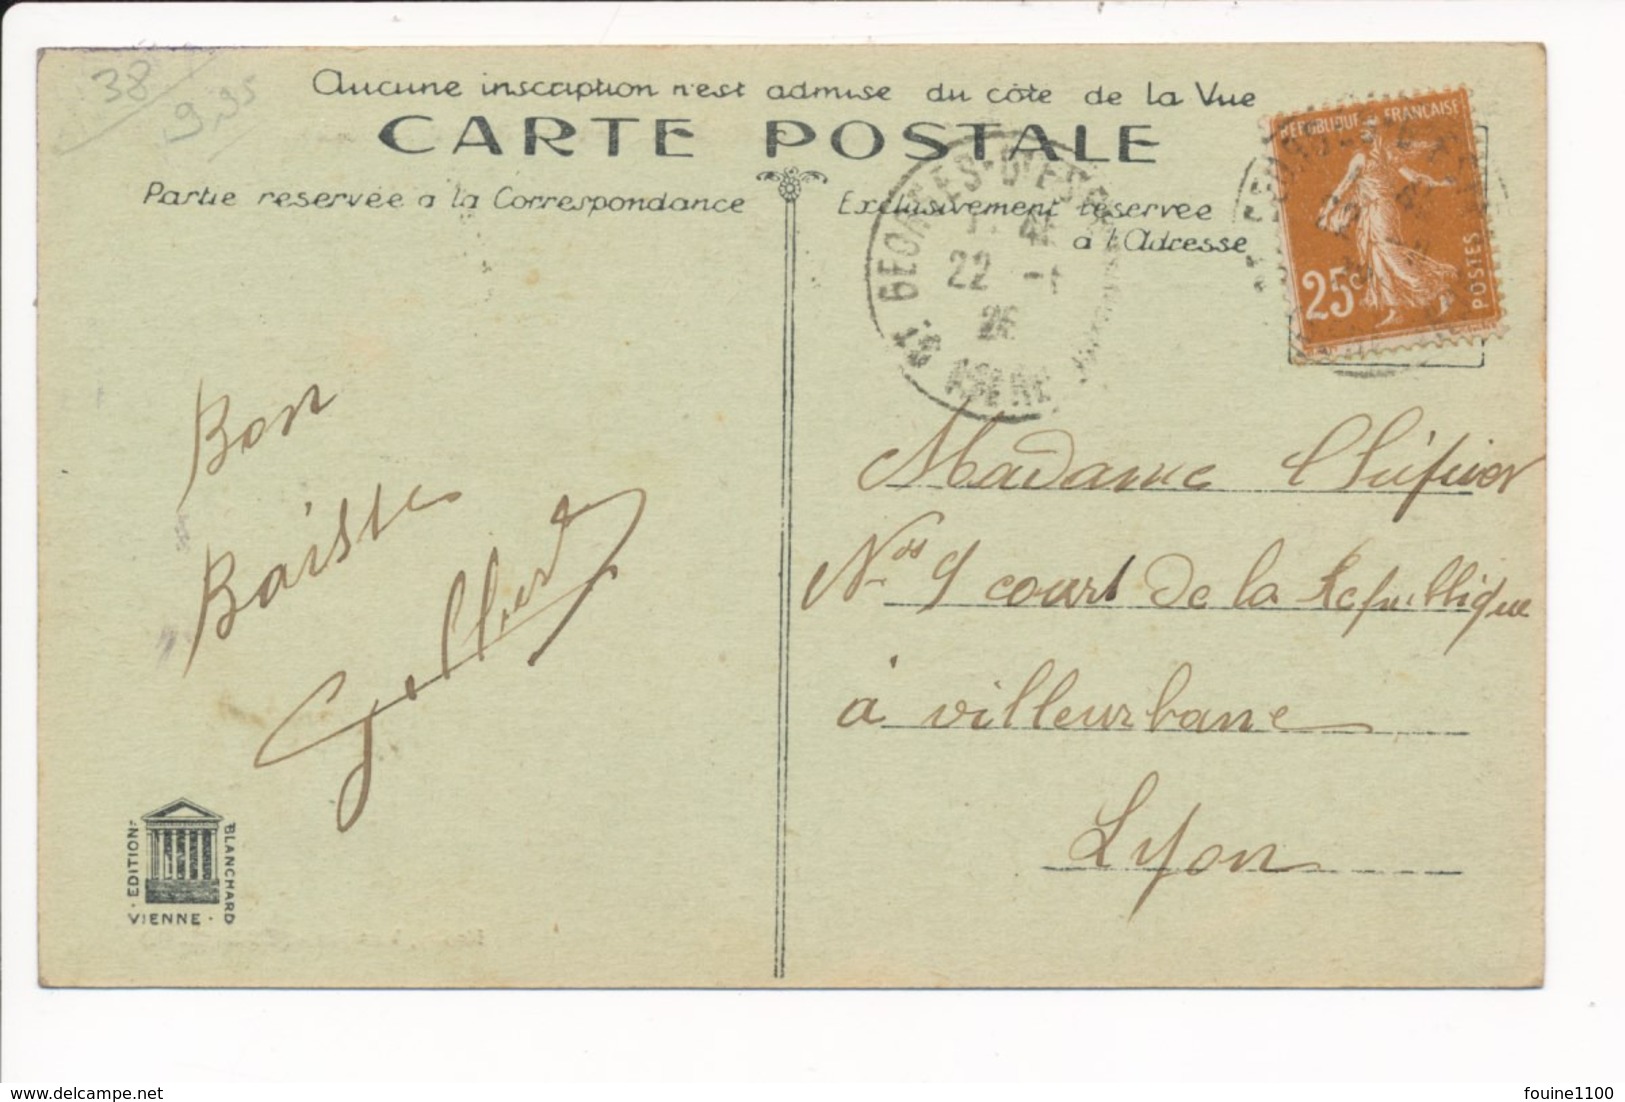 38
9,95
Aucune inscription n'est admise du côté de la Vue
CARTE POSTALE
Partie reservée a la Correspondance
Exclusivement reservee
a l'Adresse
REPUBLIQUE FRANÇAISE
25c
POSTES
ST GEORGES-D'ES
22
26
ISERE
Bon
Baiste
Madame
Nos 9 court de la Republique
à villeurbane
Lyon
EDITION
BLANCHARD
VIENNE
https://www.delcampe.net
fouine1100